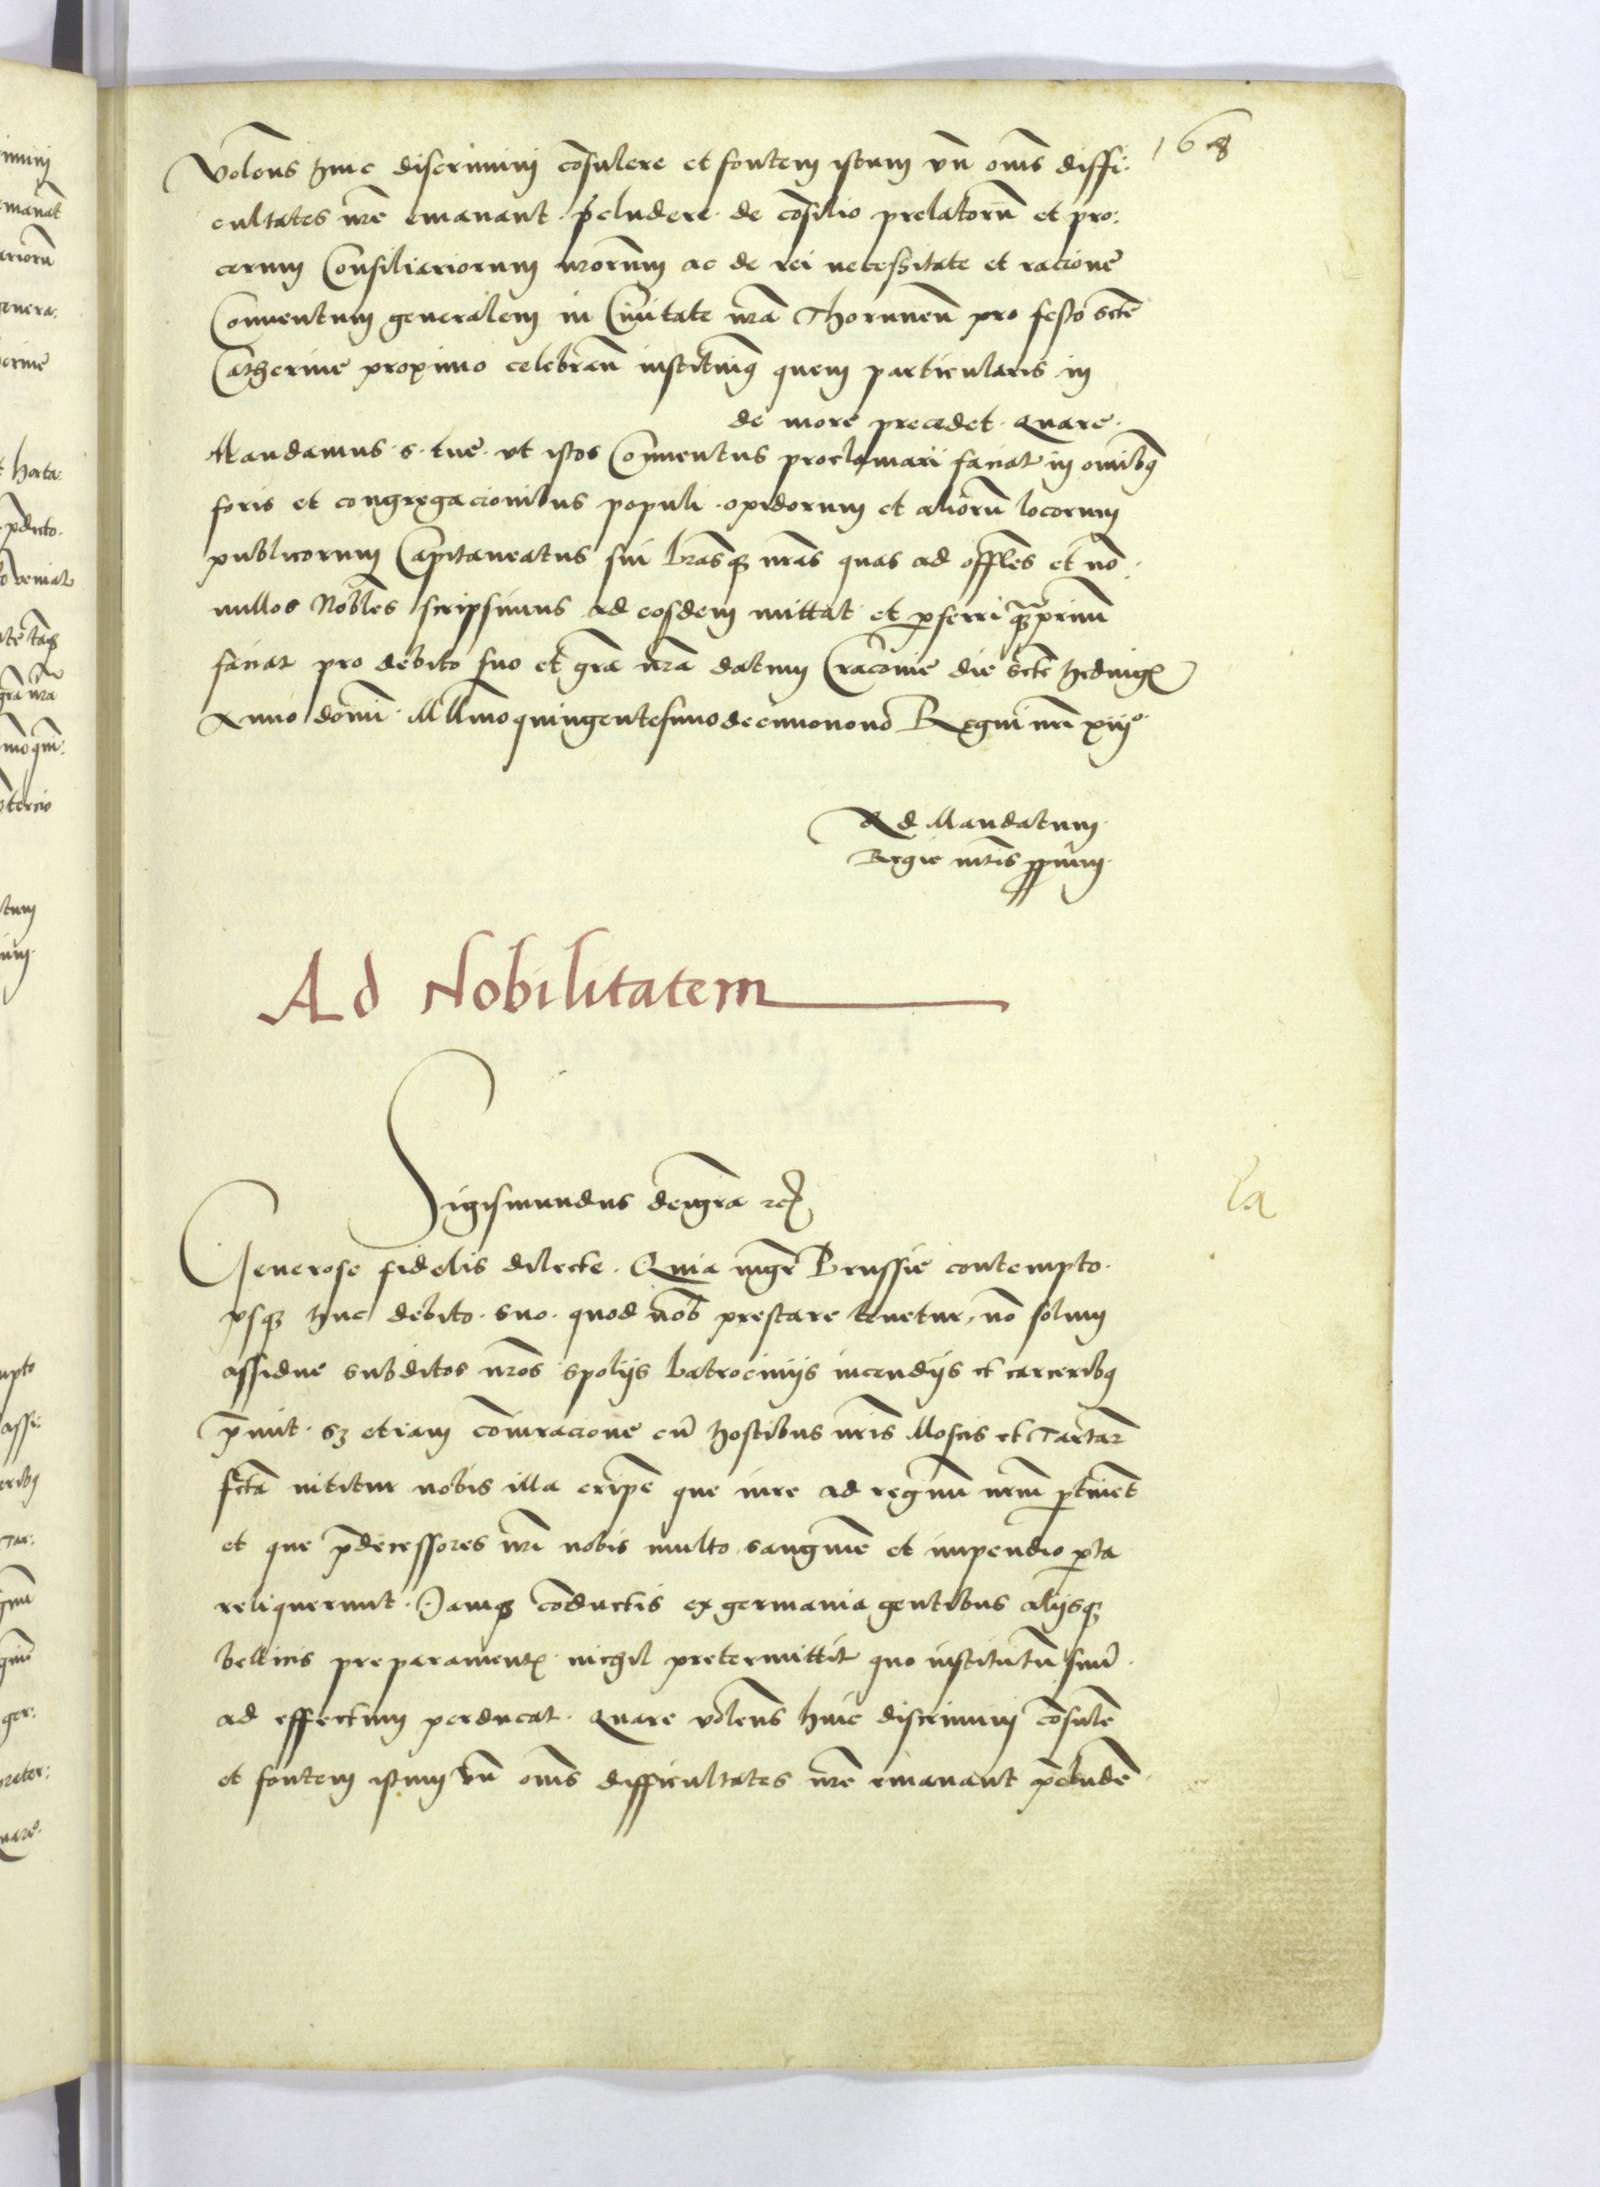 168
Volens huic discrimini cōsulere et fontem istum vn̄ om̄s diffi:
cultates nr̄e emanant p̄cludere de cōsilio prelatorū et pro:
cerum Consiliariorum nr̄orum ac de rei necessitate et racione
Conuentum generalem in Ciuitate nr̄a Thorunen̄ pro festo scte
Catherine proximo celebran̄ instituim9 quem particularis in
de more precedet. Quare.
Mandamus s. tue. vt istos Conuentus proclamari faciat in omib9
foris et congregacionibus populi opidorum et aliorū locorum
publicorum Capitaneatus sui l̄rasq3 nr̄as quas ad offl̄es et nō:
nullos Nobl̄es scripsimus ad eosdem mittat et p̄ferri q̄3primū
faciat pro debito suo et gr̄a nr̄a datum Cracouie die scte Heduigꝭ
Anno domī Millmo quingentesimodecimonono Regni nr̄i xiijº.
Ad Mandatum
Regie mtīs ppriūm
Ad Nobilitatem
Sigismundus dei gr̄a rex
la
Generose fidelis dilecte. Quia mgr̄ Prussie contempto.
vsq3 huc debito suo quod nob̄ prestare tenetur, nō solum
assidue subditos nr̄os spolijs latrocinijs incendijs et carcerib9
p̄mit. s3 etiam cōiuracione cū hostibus nr̄is Moscis et Tartar̄
fctā nititur nobis illa eripē que iure ad regnum nrm̄ ptinēt
et que p̄decessores nr̄i nobis multo sanguine et impendio pta
reliquerunt. Iamq3 cōductis ex germania gentibus alijsq3
bellicis preparamentꝭ nichil pretermittit quo institutū suū
ad effectum perducat. Quare volens huic discrimini cōsulē
et fontem istum vn̄ om̄s difficultates nr̄e emanant p̄cludē